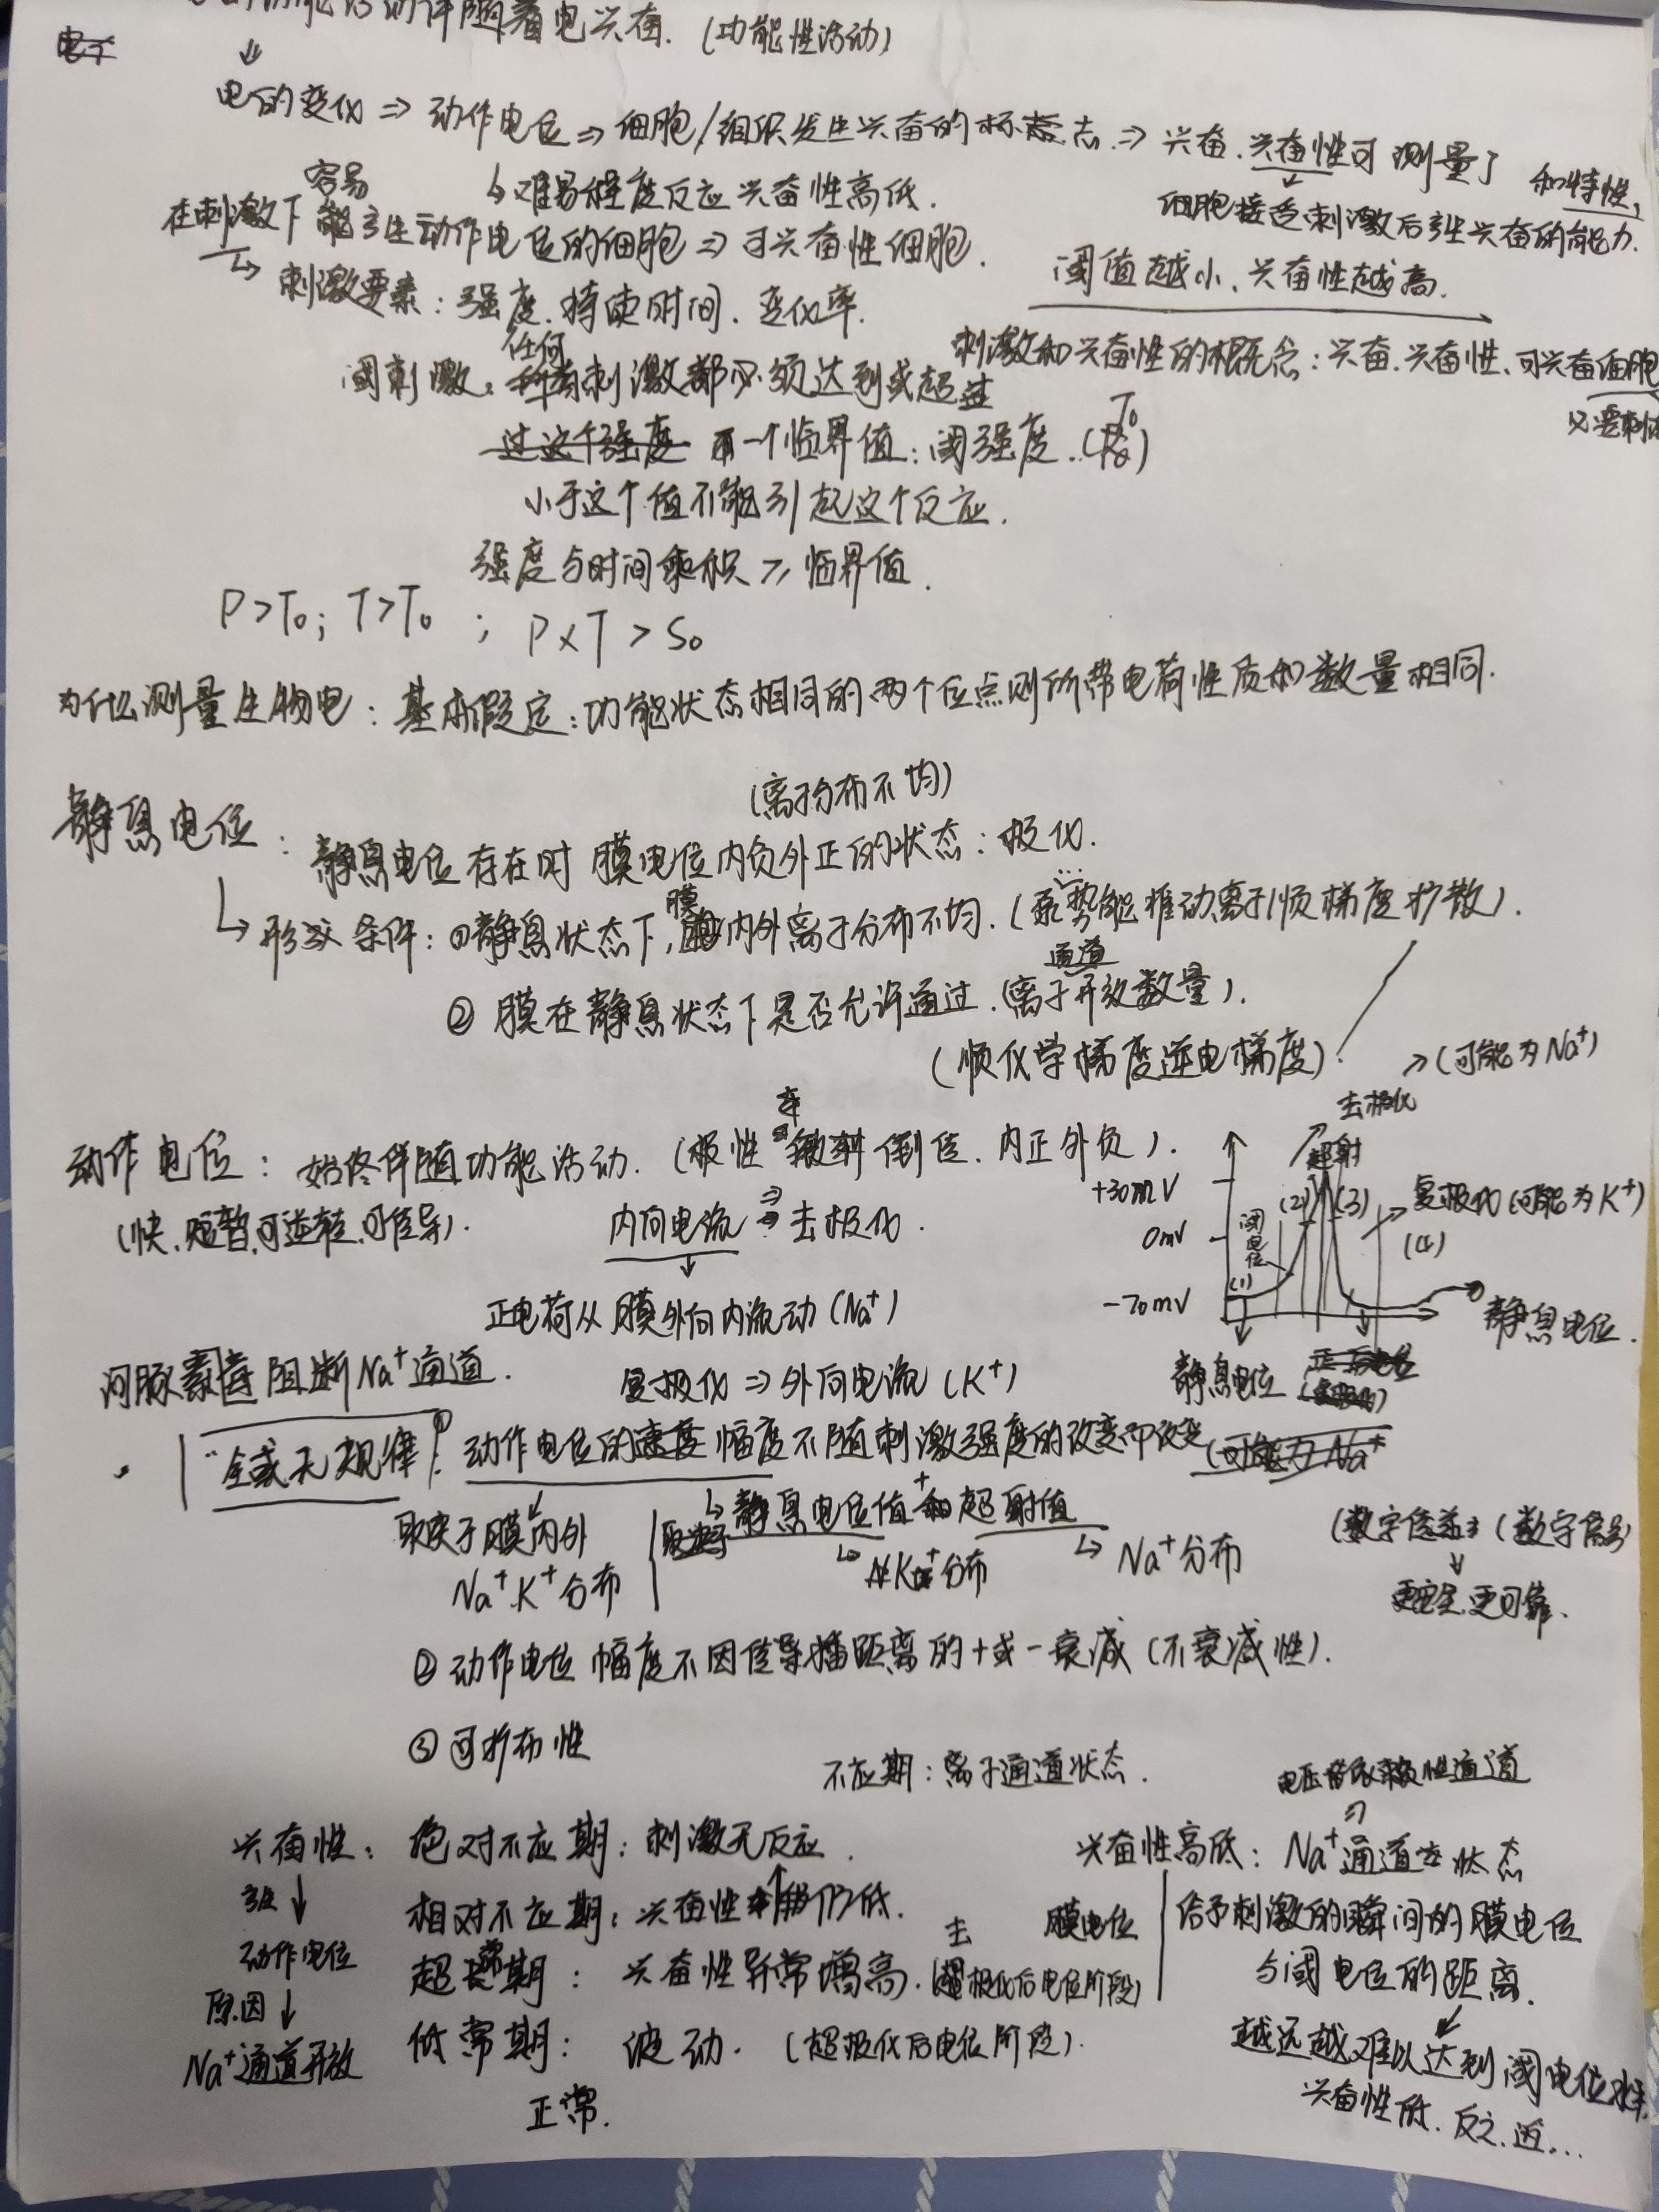 伴随着电兴奋. (功能性活动)
电的变化 ⇒ 动作电位 ⇒ 细胞/组织发生兴奋的标志 ⇒ 兴奋、兴奋性可测量了
↳ 难易程度反应兴奋性高低.
细胞接受刺激后产生兴奋的能力 和特性,
容易
在刺激下能产生动作电位的细胞 ⇒ 可兴奋性细胞.
阈值越小、兴奋性越高.
↳ 刺激要素: 强度、持续时间、变化率.
刺激和兴奋性的概念: 兴奋、兴奋性、可兴奋细胞
阈刺激: 任何刺激都必须达到或超过
一个临界值: 阈强度.
T₀
小于这个值不能引起这个反应.
强度与时间乘积 ≥ 临界值.
P>T₀; T>T₀ ; P×T > S₀
为什么测量生物电: 基本假定: 功能状态相同的两个位点则所带电荷性质和数量相同.
(离子分布不均)
静息电位: 静息电位存在时膜电位内负外正的状态: 极化.
↳ 形成条件: ①静息状态下, 膜内外离子分布不均. (势能推动离子顺梯度扩散).
② 膜在静息状态下是否允许通过. (离子通道开放数量).
(顺化学梯度逆电梯度).
→ (可能为Na⁺)
去极化
动作电位: 始终伴随功能活动. (极性倒位、内正外负).
(快、短暂、可逆转、可传导).
内向电流 ⇒ 去极化.
↓
正电荷从膜外向内流动 (Na⁺)
复极化 ⇒ 外向电流 (K⁺)
超射
+30mV
0mV
-70mV
阈电位
(1)
(2)
(3)
(4)
复极化 (可能为K⁺)
静息电位.
静息电位
河豚毒素阻断Na⁺通道.
"全或无规律": ① 动作电位的速度幅度不随刺激强度的改变而改变
(可能为Na⁺
取决于膜内外
Na⁺.K⁺分布
↳ 静息电位值 + 超射值
↳ K⁺分布
↳ Na⁺分布
(数字信号)
↓
更安全、更可靠.
② 动作电位幅度不因传导播距离的+或-衰减 (不衰减性).
③ 可扩布性
不应期: 离子通道状态.
电压依赖性通道
兴奋性: 绝对不应期: 刺激无反应.
相对不应期: 兴奋性↑但仍低.
超常期: 兴奋性异常增高. (去极化后电位阶段)
低常期: 波动. (超极化后电位阶段).
正常.
↓
动作电位
原因 ↓
Na⁺通道开放
兴奋性高低: Na⁺通道状态
膜电位
给予刺激的瞬间的膜电位
与阈电位的距离.
越远越难以达到阈电位水平.
兴奋性低. 反之.近...